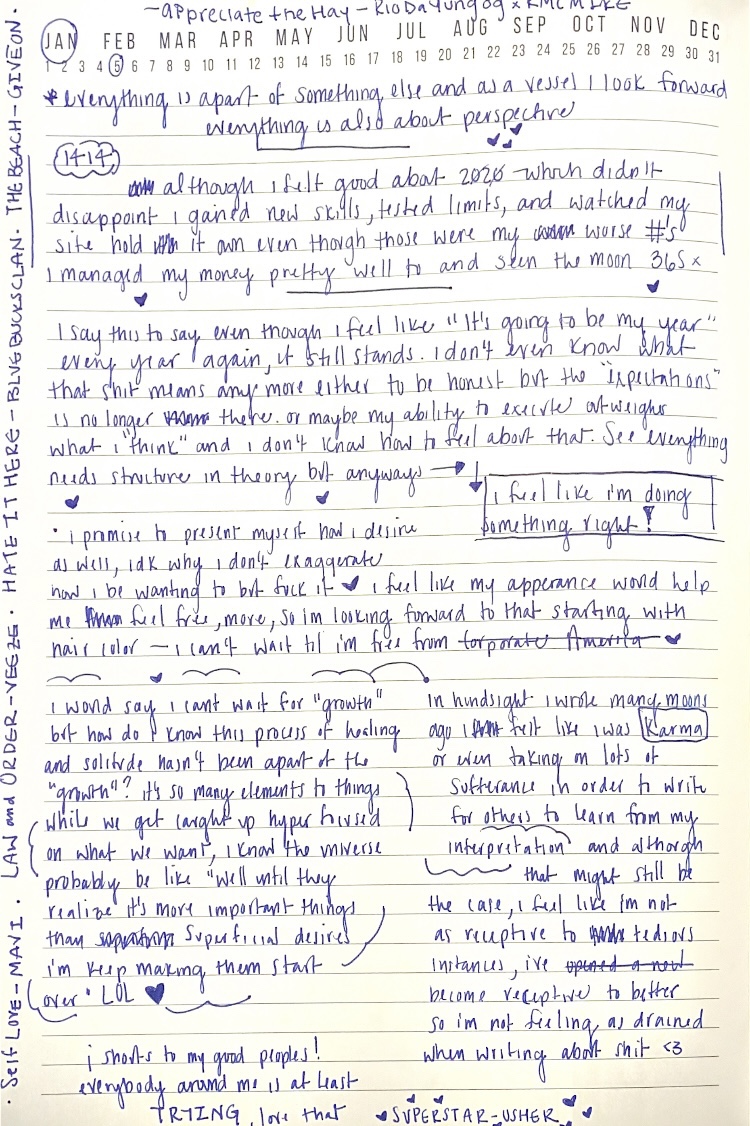 - appreciate the Hay - Rio Da Yung og x RMC MIKE
JAN FEB MAR APR MAY JUN JUL AUG SEP OCT NOV DEC
1 2 3 4 5 6 7 8 9 10 11 12 13 14 15 16 17 18 19 20 21 22 23 24 25 26 27 28 29 30 31
*everything is apart of something else and as a vessel I look forward
everything is also about perspective
14:14
although i felt good about 2025 which didn't
disappoint i gained new skills, tested limits, and watched my
site hold it own even though those were my worse #'s
I managed my money pretty well to and seen the moon 365x
I say this to say even though i feel like "It's going to be my year"
every year again, it still stands. I don't even know what
that shit means any more either to be honest but the "expectations"
is no longer there. or maybe my ability to execute outweighs
what i "think" and i don't know how to feel about that. See everything
needs structure in theory but anyways
i feel like i'm doing
something right!
• i promise to present myself how i desire
as well, idk why i don't exaggerate
how i be wanting to but fuck it i feel like my apperance would help
me feel free, more, so im looking forward to that starting with
hair color - i can't wait til i'm free from corporate America
i would say i cant wait for "growth"
but how do i know this process of healing
and solitude hasn't been apart of the
"growth"? it's so many elements to things
while we get caught up hyper focused
on what we want, i know the universe
probably be like "well until they
realize it's more important things
than superficial desires
i'm keep making them start
over" LOL
In hindsight i wrote many moons
ago i felt like i was Karma
or even taking on lots of
sufferance in order to write
for others to learn from my
interpretation and although
that might still be
the case, i feel like i'm not
as receptive to tedious
instances, ive opened a new
become receptive to better
so im not feeling as drained
when writing about shit <3
¡ shouts to my good peoples!
everybody around me is at least
TRYING, love that
SUPERSTAR-USHER
• Self Love - MAVI . LAW and ORDER - VEEZE . HATE IT HERE - BLUEBUCKSCLAN . THE BEACH - GIVEON .